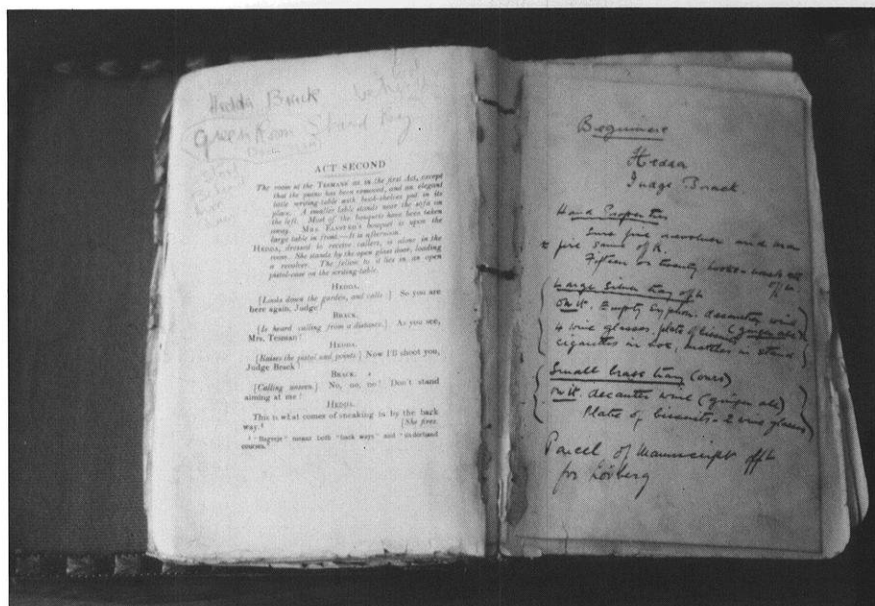 Hedda Brack
Green Room
ACT SECOND
The room at the TESMANS' as in the first Act, except
that the piano has been removed, and an elegant
little writing-table with book-shelves put in its
place. A smaller table stands near the sofa on
the left. Most of the bouquets have been taken
away. MRS. ELVSTED'S bouquet is upon the
large table in front.—It is afternoon.
HEDDA, dressed to receive callers, is alone in the
room. She stands by the open glass door, loading
a revolver. The fellow to it lies in an open
pistol-case on the writing-table.
HEDDA.
[Looks down the garden, and calls:] So you are
here again, Judge!
BRACK.
[Is heard calling from a distance.] As you see,
Mrs. Tesman!
HEDDA.
[Raises the pistol and points.] Now I'll shoot you,
Judge Brack!
BRACK.
[Calling unseen.] No, no, no! Don't stand
aiming at me!
HEDDA.
This is what comes of sneaking in by the back
way.¹ [She fires.
¹ "Bagveje" means both "back ways" and "underhand
courses."
Beginners
Hedda
Judge Brack
Hand Properties
Sure fire revolver and man
to fire same off R.
Fifteen or twenty books
off L
Large Silver tray off L
on it. Empty syphon. decanter wine
4 wine glasses. plate of biscuits (ginger ale)
cigarettes in box, matches in stand
Small brass tray (ours)
on it. decanter wine (ginger ale)
Plate of biscuits - 2 wine glasses
Parcel of Manuscript off L
for Lövborg